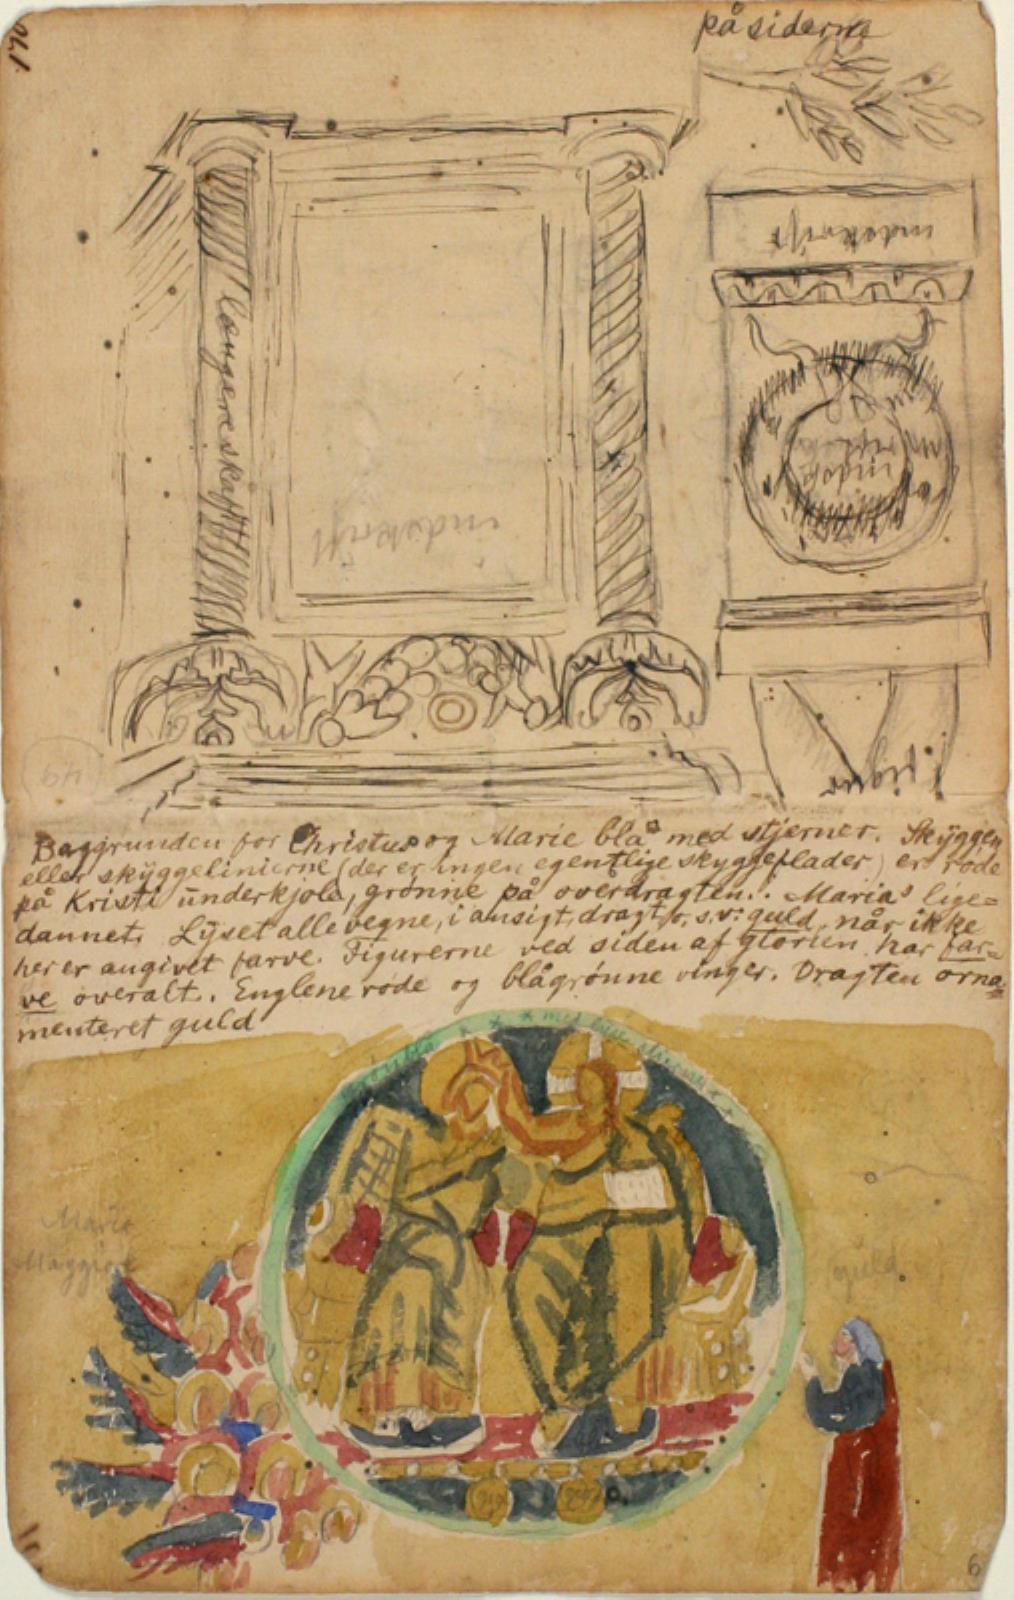 170
på siderne
indskrift
længere skaft
indskrift
indsk
Baggrunden for Christus og Marie blå med stjerner. Skyggen
eller skyggelinierne (der er ingen egentlige skyggeflader) er røde
på Kristi underkjole, grønne på overdragten. Marias lige=
dannet. Lyset alle vegne, i ansigt, dragt o. s. v: guld, når ikke
her er angivet farve. Figurerne ved siden af glorien har far=
ve overalt. Englene røde og blågrønne vinger. Dragten orna=
menteret guld
med
Maria
Maggiore
guld
guld
guld
6
49